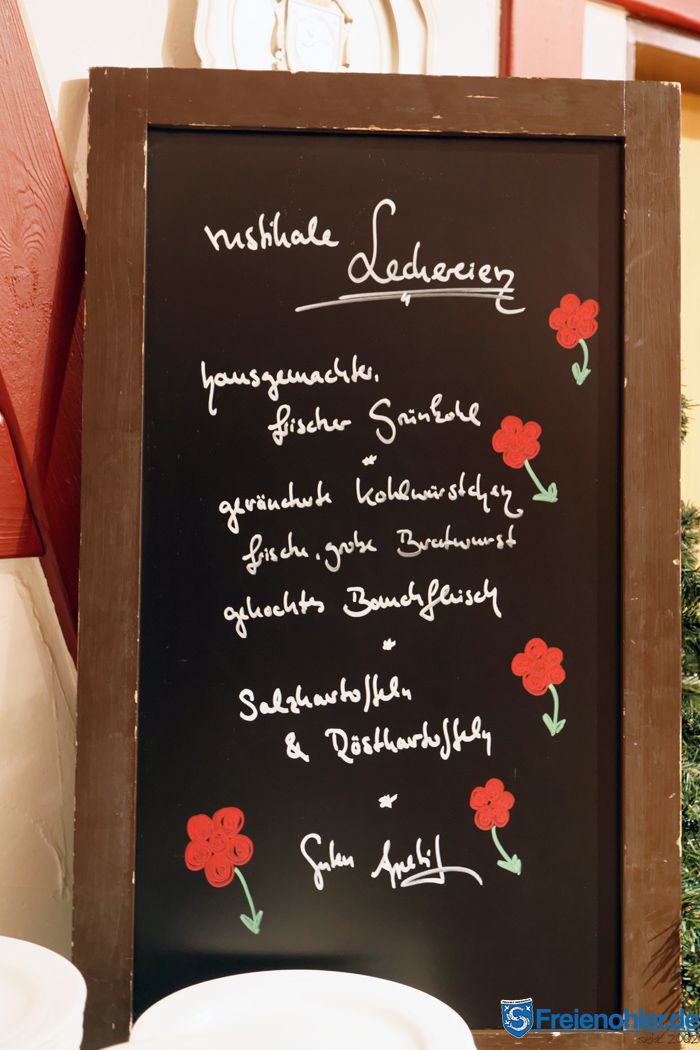 rustikale
Leckereien
hausgemachter,
frischer Grünkohl
*
geräucherte Kohlwürstchen
frische, grobe Bratwurst
gekochtes Bauchfleisch
*
Salzkartoffeln
& Röstkartoffeln
*
Guten Appetit
Freienohler.de
seit 2002